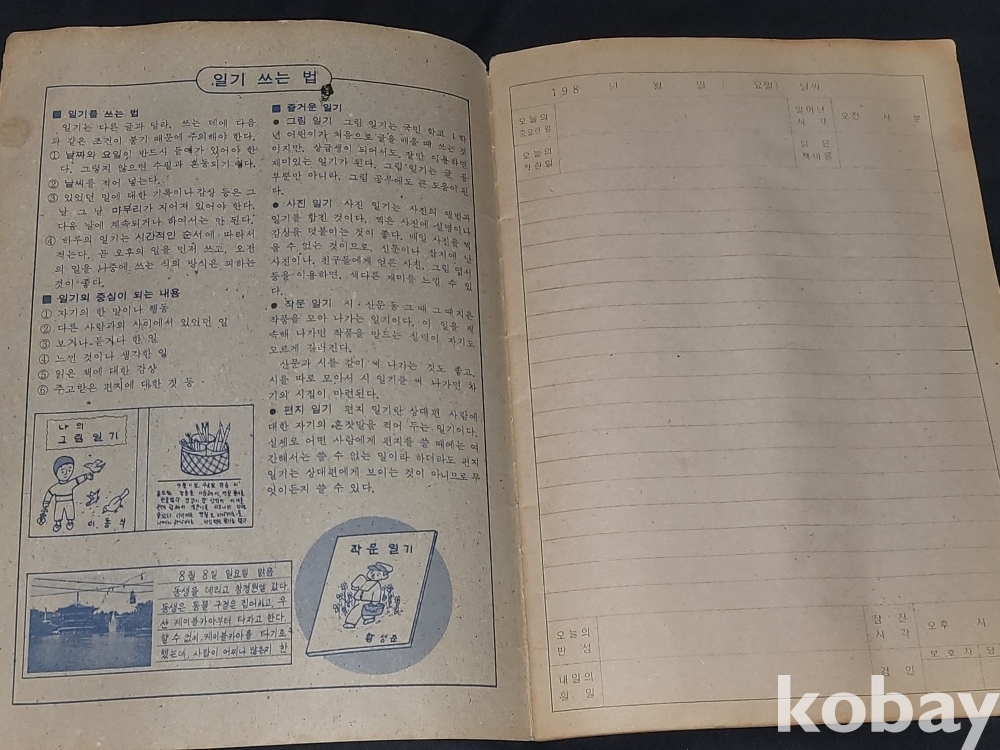 일기 쓰는 법
■ 일기를 쓰는 법
일기는 다른 글과 달라, 쓰는 데에 다음
과 같은 조건이 붙기 때문에 주의해야 한다.
① 날짜와 요일이 반드시 들어가 있어야 한
다. 그렇지 않으면 수필과 혼동되기 쉽다.
② 날씨를 적어 넣는다.
③ 있었던 일에 대한 기록이나 감상 등은 그
날 그 날 마무리가 지어져 있어야 한다.
다음 날에 계속되거나 하여서는 안 된다.
④ 하루의 일기는 시간적인 순서에 따라서
적는다. 곧 오후의 일을 먼저 쓰고, 오전
의 일을 나중에 쓰는 식의 방식은 피하는
것이 좋다.
■ 일기의 중심이 되는 내용
① 자기의 한 말이나 행동
② 다른 사람과의 사이에서 있었던 일
③ 보거나 듣거나 한 일
④ 느낀 것이나 생각한 일
⑤ 읽은 책에 대한 감상
⑥ 주고받은 편지에 대한 것 등
■ 즐거운 일기
● 그림 일기 그림 일기는 국민 학교 1학
년 어린이가 처음으로 글을 배울 때 쓰는 것
이지만, 상급생이 되어서도, 잘만 이용하면
재미있는 일기가 된다. 그림 일기는 글 공
부뿐만 아니라, 그림 공부에도 큰 도움이 된
다.
● 사진 일기 사진 일기는 사진의 앨범과
일기를 합친 것이다. 찍은 사진에 설명이나
감상을 덧붙이는 것이 좋다. 매일 사진을 찍
을 수 없는 것이므로, 신문이나 잡지에 난
사진이나, 친구들에게 얻은 사진, 그림 엽서
등을 이용하면, 색다른 재미를 느낄 수 있
다.
● 작문 일기 시·산문 등 그 때 그 때 지은
작품을 모아 나가는 일기이다. 이 일을 계
속해 나가면 작품을 만드는 실력이 자기도
모르게 길러진다.
산문과 시를 같이 써 나가는 것도 좋고,
시를 따로 모아서 시 일기를 써 나가면, 차
기의 시집이 마련된다.
● 편지 일기 편지 일기란 상대편 사람에
대한 자기의 혼잣말을 적어 두는 일기이다.
실제로 어떤 사람에게 편지를 쓸 때에는 여
간해서는 쓸 수 없는 일이라 하더라도 편지
일기는 상대편에게 보이는 것이 아니므로 무
엇이든지 쓸 수 있다.
나의
그림 일기
이 동 식
8월 8일 일요일 맑음
동생을 데리고 창경원엘 갔다
동생은 동물 구경은 집어치고, 우
선 케이블카아부터 타자고 한다.
할 수 없이 케이블카아를 타기로
했는데, 사람이 어찌나 많은지 한
작문 일기
황 성 준
198 년 월 일 ( 요일) 날씨
오늘의
중요한 일
일어난
시각
오전 시 분
오늘의
착한일
읽은
책이름
오늘의
반성
잠 잔
시각
오후 시
내일의
할 일
검인
보호자 담
kobay